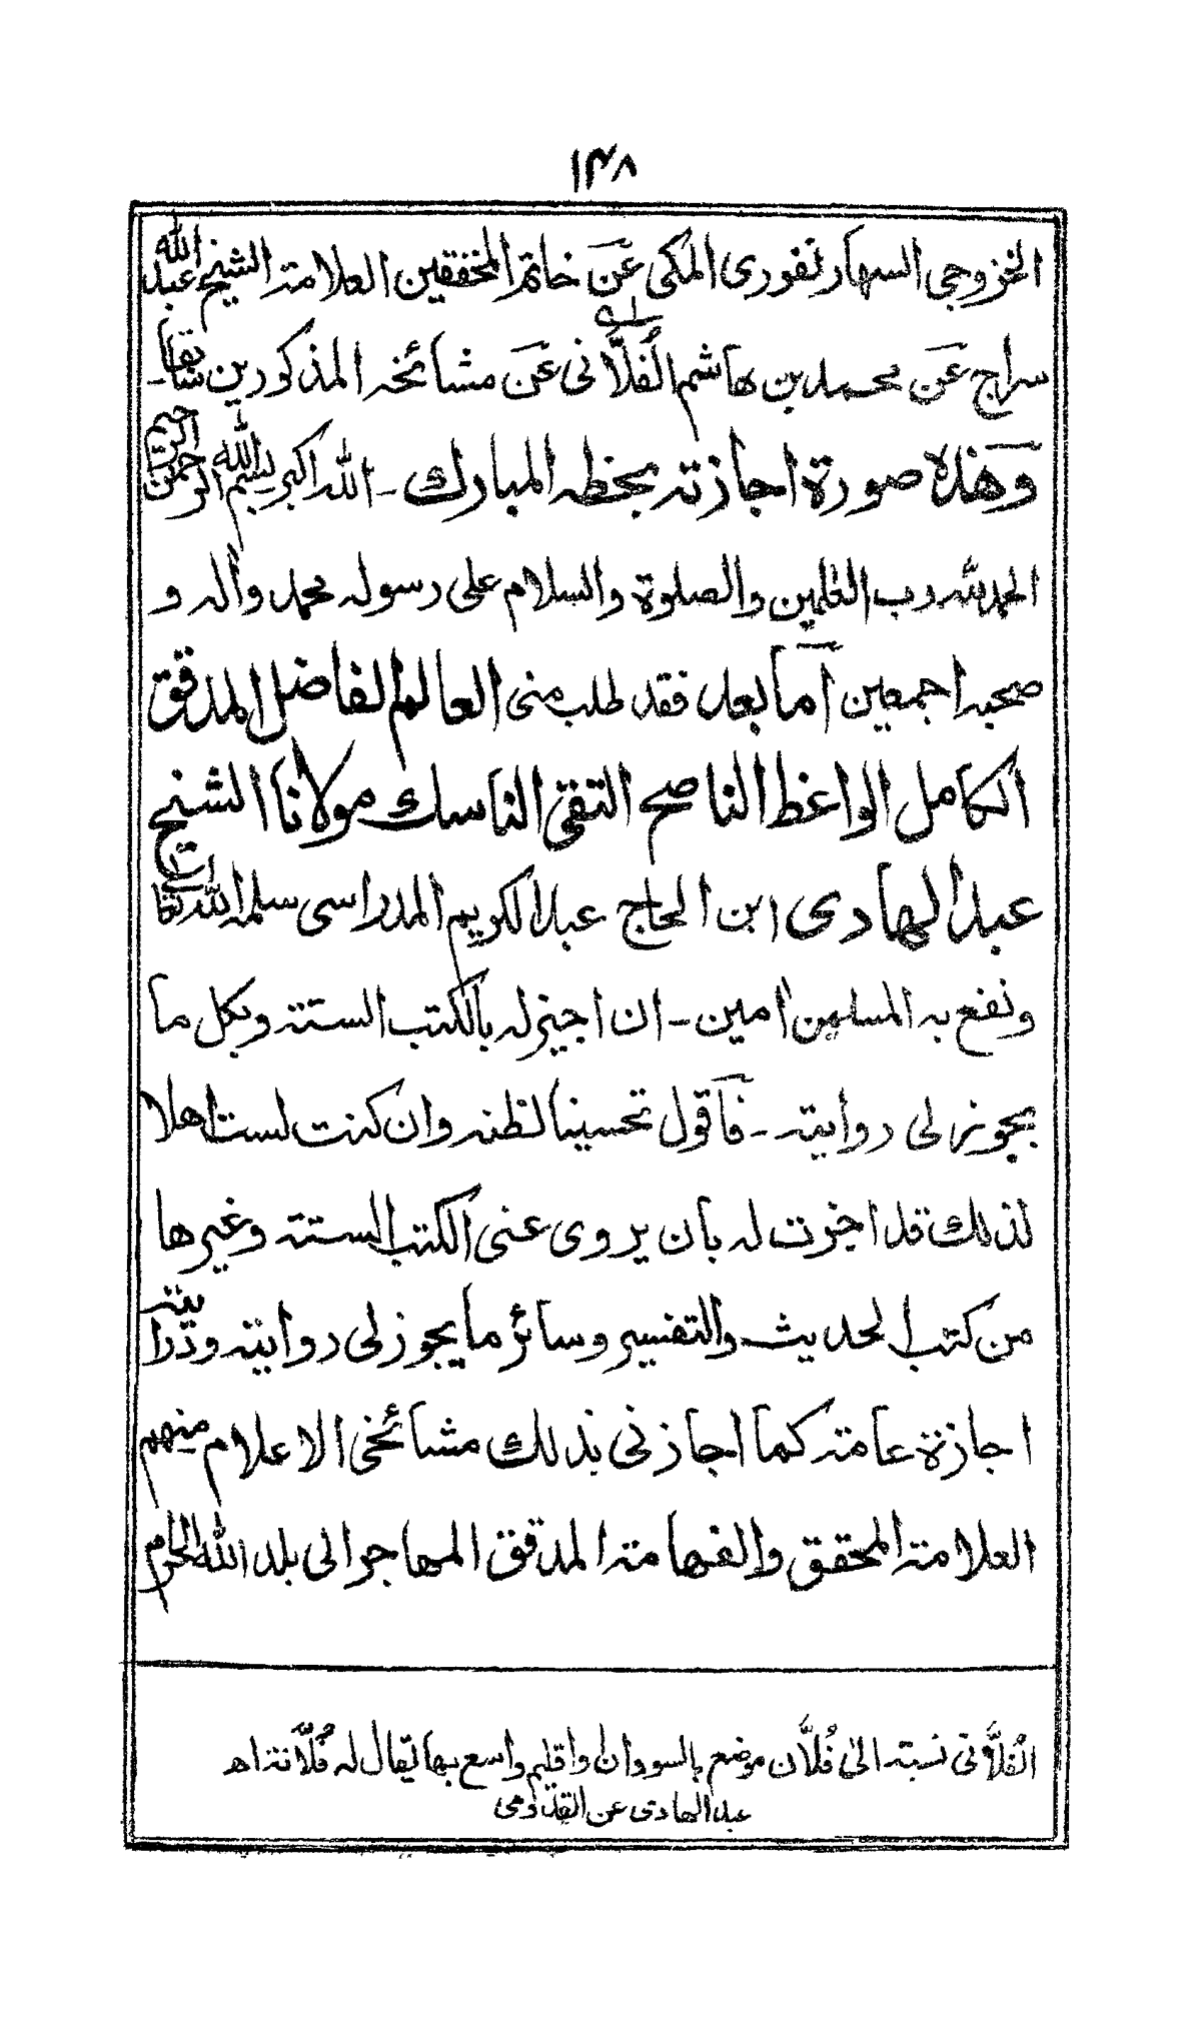 ١٣٨
الخزوجى السهارنفورى المكى عَن خاتم المحققين العلامة الشيخ عبد الله
سراج عَن محمد بن هاشم الفُلّانى عَن مشائخه المذكورين سابقا ـ
وَهٰذه صورة اجازته بخطه المبارك ـ الله اكبر بسم الله الرحمن الرحيم
الحمد لله رب العٰلمين والصلوة والسلام على رسوله محمد واٰله و
صحبه اجمعين اَما بعد فقد طلب منى العالم الفاضل المدقق
الكامل الواعظ الناصح التقى الناسك مولانا الشيخ
عبد الهادى ابن الحاج عبد الكريم المدراسى سلمه الله تعالى
ونفع به المسلمين اٰمين ـ ان اجيز له بالكتب الستة وبكل ما
يجوز لى روايته ـ فاَقول تحسينا لظنه وان كنت لست اهلا
لذلك قد اجزت له بان يروى عنى الكتب الستة وغيرها
من كتب الحديث والتفسير وسائر ما يجوز لى روايته ودرايته
اجازة عامة كما اجازنى بذلك مشائخى الاعلام منهم
العلامة المحقق والفهامة المدقق المهاجر الى بلد الله الحرام
الفُلَّانى نسبة الى فُلَّان موضع بالسودان واقليم واسع بها يقال له فُلّانة اه
عبد الهادى عن القدومى